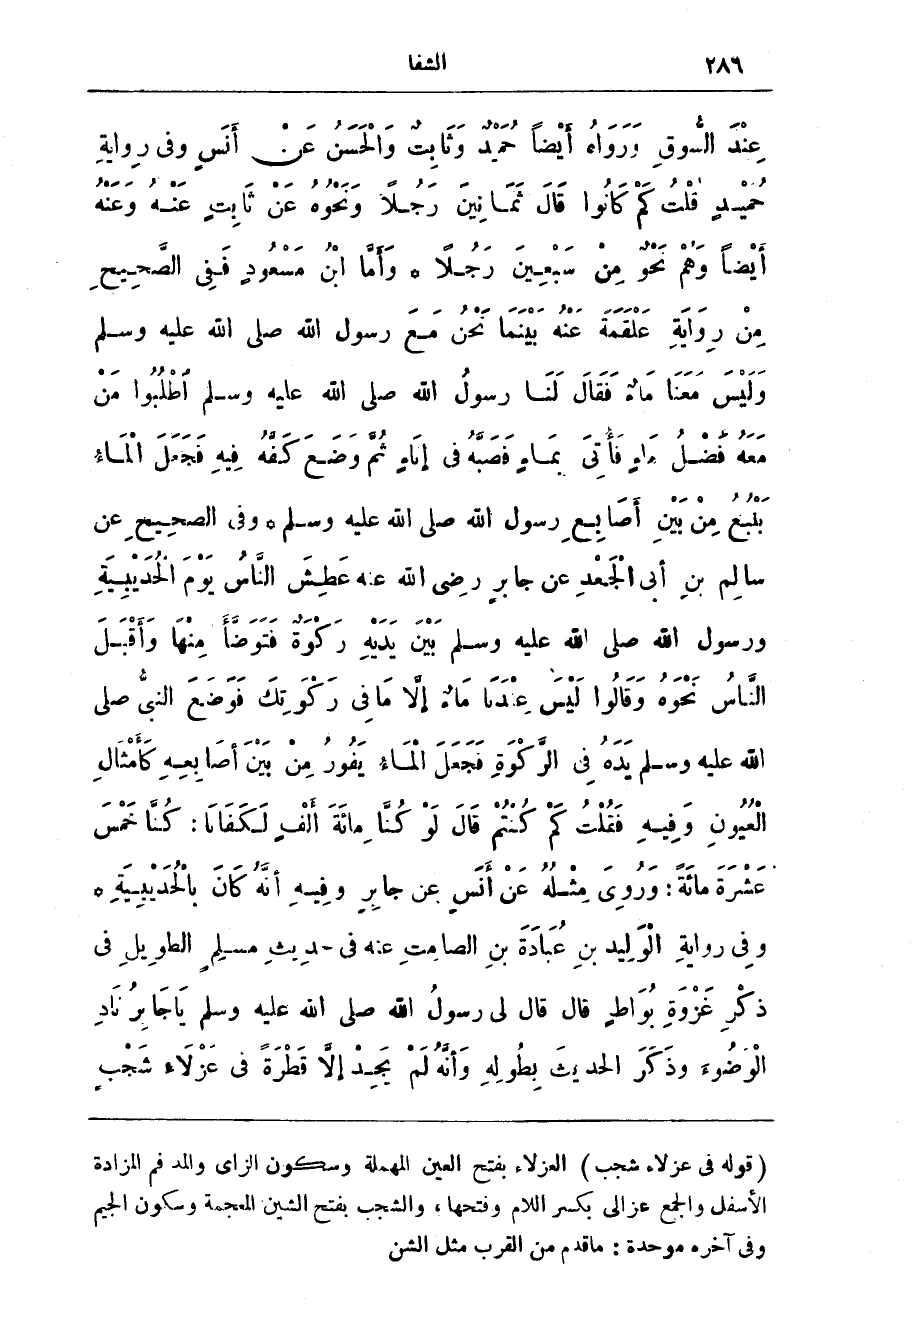 ٢٨٦ الشفا
عِنْدَ السُّوقِ وَرَوَاهُ أَيْضاً حُمَيْدٌ وَثَابِتٌ وَالْحَسَنُ عَنْ أَنَسٍ وفى روايةِ
حُمَيْدٍ قُلْتُ كَمْ كَانُوا قَالَ ثَمَانِينَ رَجُلًا وَنَحْوُهُ عَنْ ثَابِتٍ عَنْهُ وَعَنْهُ
أَيْضاً وَهُمْ نَحْوٌ مِنْ سَبْعِينَ رَجُلًا ٭ وَأَمَّا ابْنُ مَسْعُودٍ فَفِى الصَّحِيحِ
مِنْ رِوَايَةِ عَلْقَمَةَ عَنْهُ بَيْنَمَا نَحْنُ مَعَ رسول الله صلى الله عليه وسلم
وَلَيْسَ مَعَنَا مَاءٌ فَقَالَ لَنَا رسولُ الله صلى الله عليه وسلم اُطْلُبُوا مَنْ
مَعَهُ فَضْلُ مَاءٍ فَأُتِىَ بِمَاءٍ فَصَبَّهُ فى إِنَاءٍ ثُمَّ وَضَعَ كَفَّهُ فِيهِ فَجَعَلَ الْمَاءُ
يَنْبُعُ مِنْ بَيْنِ أَصَابِعِ رسول الله صلى الله عليه وسلم ٭ وفى الصحيح عن
سالِم بنِ أبى الْجَعْدِ عن جابرٍ رضى الله عنه عَطِشَ النَّاسُ يَوْمَ الْحُدَيْبِيَةِ
ورسول الله صلى الله عليه وسلم بَيْنَ يَدَيْهِ رَكْوَةٌ فَتَوَضَّأَ مِنْهَا وَأَقْبَلَ
النَّاسُ نَحْوَهُ وَقَالُوا لَيْسَ عِنْدَنَا مَاءٌ إِلَّا مَا فى رَكْوَتِكَ فَوَضَعَ النبىُّ صلى
الله عليه وسلم يَدَهُ فِى الرَّكْوَةِ فَجَعَلَ الْمَاءُ يَفُورُ مِنْ بَيْنِ أَصَابِعِهِ كَأَمْثَالِ
الْعُيُونِ وَفِيهِ فَقُلْتُ كَمْ كُنْتُمْ قَالَ لَوْ كُنَّا مِائَةَ أَلْفٍ لَكَفَانَا : كُنَّا خَمْسَ
عَشْرَةَ مائَةً : وَرُوِىَ مِثْلُهُ عَنْ أَنَسٍ عن جابِرٍ وفِيهِ أنَّهُ كَانَ بِالْحُدَيْبِيَةِ ٭
وفى روايةِ الْوَلِيدِ بنِ عُبَادَةَ بنِ الصامِتِ عنه فى حديثِ مسلِمٍ الطويلِ فى
ذكْرِ غَزْوَةِ بُوَاطٍ قال قال لى رسولُ الله صلى الله عليه وسلم يَا جَابِرُ نَادِ
الْوَضُوءَ وذَكَرَ الحديثَ بِطُولِهِ وَأَنَّهُ لَمْ يَجِدْ إِلَّا قَطْرَةً فى عَزْلَاءِ شَجْبٍ
( قوله فى عزلاء شجب ) العزلاء بفتح العين المهملة وسكون الزاى والمد فم المزادة
الأسفل والجمع عزالى بكسر اللام وفتحها ، والشجب بفتح الشين المعجمة وسكون الجيم
وفى آخره موحدة : ماقدم من القرب مثل الشن